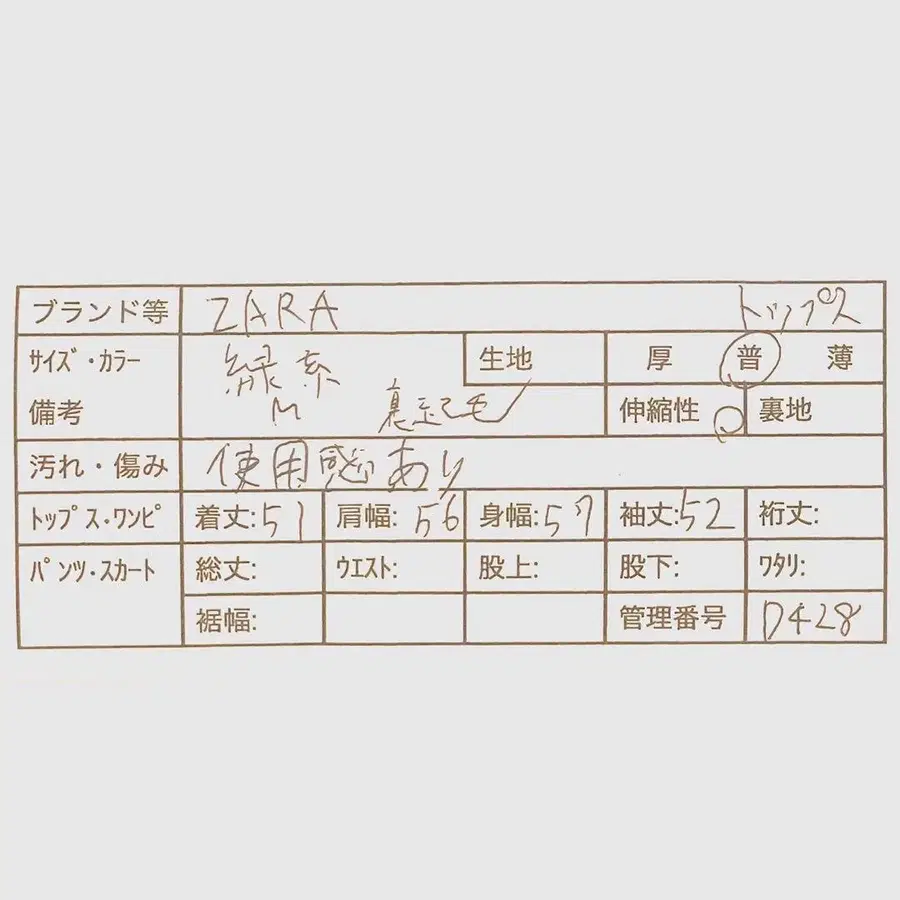 ブランド等 ZARA トップス
サイズ・カラー 緑系 生地 厚 普 薄
備考 M 裏起毛 伸縮性 裏地
汚れ・傷み 使用感あり
トップス・ワンピ 着丈:51 肩幅:56 身幅:57 袖丈:52 裄丈:
パンツ・スカート 総丈: ウエスト: 股上: 股下: ワタリ:
裾幅: 管理番号 D428